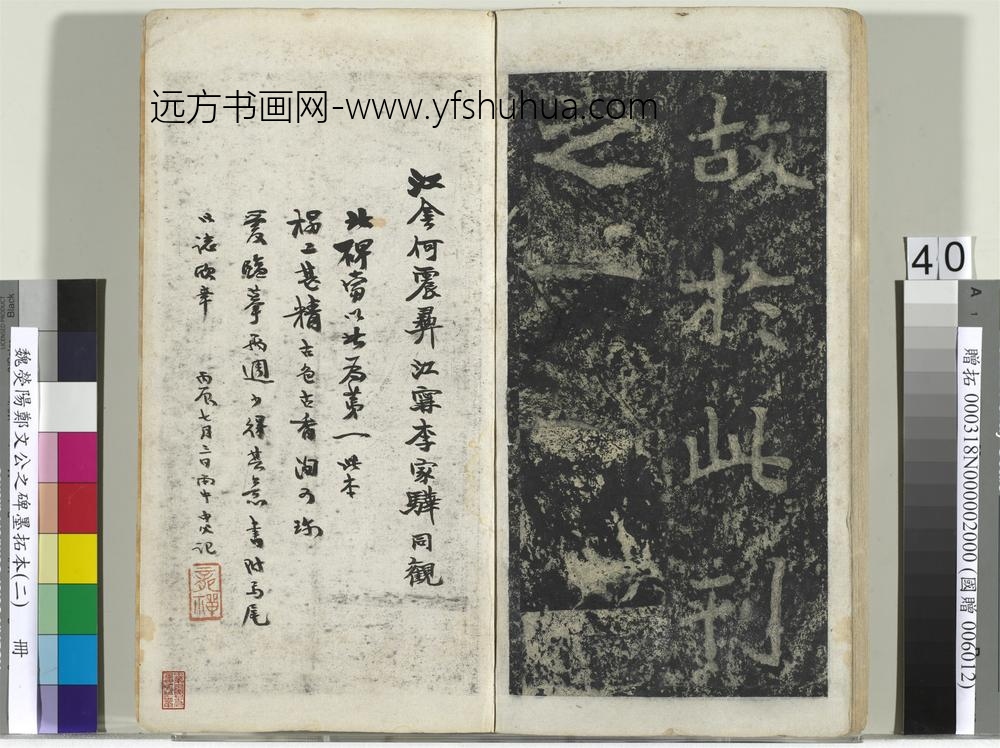 远方书画网-www.yfshuhua.com
故於此刊
之
江寧何震彝江寧李家驊同觀
北碑當以此為第一此本
榻工甚精古色古香洵可珍
愛臨摹兩週少得其意書附馬尾
以誌欣幸
丙辰七月二日雨中 記
40
魏滎陽鄭文公之碑墨拓本(二) 冊
贈拓 000318N000002000 (國贈 006012)
A 1
Black